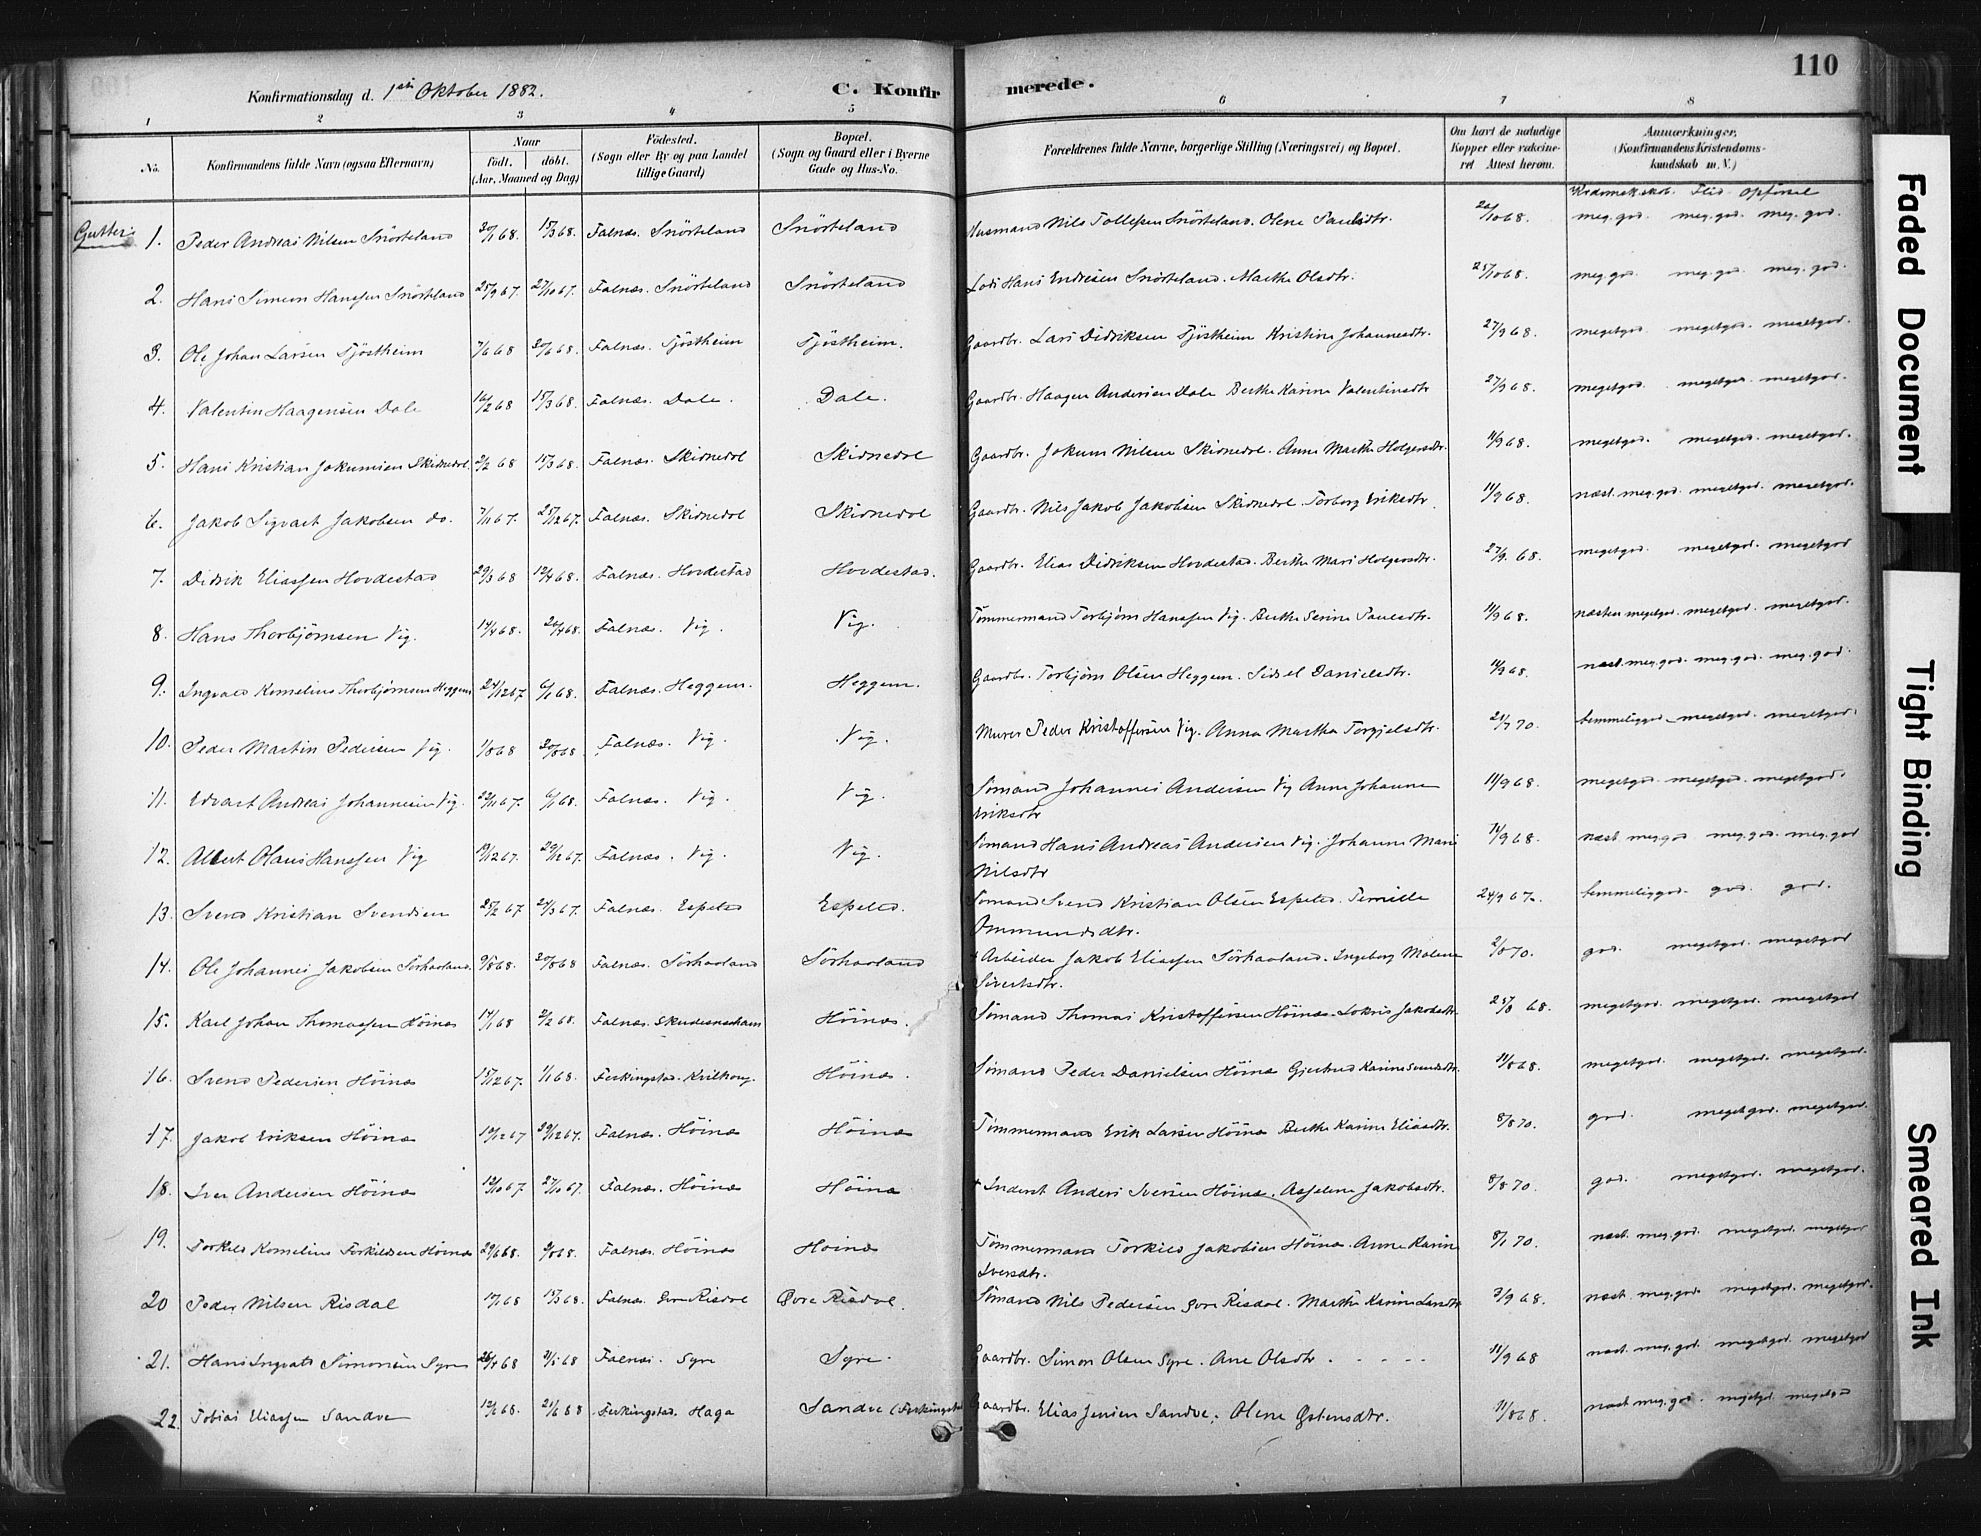 110
Konfirmationsdag d. 1ste Oktober 1882.
C. Konfirmerede.
1 2 3 4 5 6 7 8
No.
Konfirmandens fulde Navn (ogsaa Efternavn)
Naar
födt. döbt.
(Aar, Maaned og Dag)
Födested.
(Sogn eller By og paa Landet
tillige Gaard)
Bopæl.
(Sogn og Gaard eller i Byerne
Gade og Hus-No.
Forældrenes fulde Navne, borgerlige Stilling (Næringsvei) og Bopæl.
Om havt de naturlige
Kopper eller vakcine-
ret Attest herom.
Anmærkninger.
(Konfirmandens Kristendoms-
kundskab m. V.)
Flid Opførsel
Gutter
1. Peder Andreas Nilsen Snörteland 15/3 68. Falnæs. Snörteland Snörteland Husmand Nils Tollefsen Snörteland. Olene Paulsdtr. 26/10 68. meg. god. meg. god. meg. god.
2. Hans Simon Hanssen Snörteland 25/9 67. 27/10 67. Falnæs. Snörteland Snörteland Lods Hans Endresen Snörteland. Marthe Olsdtr. 25/10 68. meg. god. meg. god. meg. god.
3. Ole Johan Larsen Tjöstheim 7/6 68 Falnæs. Tjöstheim Tjöstheim. Gaardbr. Lars Didriksen Tjöstheim Kristine Johannesdtr. 27/9 68. megetgod. megetgod. megetgod.
4. Valentin Haagensen Dale 16/2 68 15/3 68. Falnæs. Dale. Dale. Gaardbr. Haagen Andersen Dale Berthe Karine Valentinsdtr 27/9 68. megetgod. megetgod. megetgod.
5. Hans Kristian Jokumsen Skidnedol. 2/2 68 15/3 68. Falnæs. Skidnedol Skidnedol Gaardbr. Jokum Nilsen Skidnedol. Anne Marthe Holgersdtr. 11/9 68. megetgod. megetgod. megetgod.
6. Jakob Sigvart Jakobsen do. 7/11 67. 25/12 67. Falnæs. Skidnedol Skidnedol Gaardbr. Nils Jakob Jakobsen Skidnedol. Torborg Eriksdtr. 11/9 68. næst. meg. god. megetgod. megetgod.
7. Didrik Eliassen Hovdestad 29/3 68 19/4 68. Falnæs. Hovdestad Hovdestad. Gaardbr. Elias Didriksen Hovdestad. Berthe Mari Holgersdtr. 27/9. 68. megetgod. megetgod. megetgod
8. Hans Thorbjørnsen Vig. 14/4 68. 26/4 68. Falnæs. Vig. Vig. Tömmermand Torbjørn Hanssen Vig. Berthe Serine Paulsdtr. 11/9 68. næsten megetgod. megetgod. megetgod.
9. Ingvald Kornelius Thorbjørnsen Heggem 24/12 67 6/1 68. Falnæs. Heggem. Heggem. Gaardbr. Torbjørn Olsen Heggem. Sidsel Danielsdtr. 11/9 68. næst. meg. god. meg. god. meg. god.
10. Peder Martin Pedersen Vig. 1/8 68 Falnæs. Vig. Vig. Murer Peder Kristoffersen Vig. Anna Martha Torgjelsdtr. temmeliggod. megetgod. megetgod.
11. Edvart Andreas Johannesen Vig. 22/11 67. 6/1 68. Falnæs. Vig. Vig. Sömand Johannes Andersen Vig Anne Johanne
Eriksdtr 11/9 68. megetgod. megetgod. megetgod.
12. Albert Olaus Hanssen Vig 19/12 67. 29/12 67. Falnæs. Vig. Vig. Sömand Hans Andreas Andersen Vig. Johanne Marie
Nilsdtr 11/9 68. næst. meg. god. meg. god. meg. god
13. Svend Kristian Svendsen 25/2 67 24/3 67. Falnæs. Espeled Espeled. Sömand Svend Kristian Olsen Espeled. Pernille
Ommundsdtr. 24/9 67. temmeliggod. god. god.
14. Ole Johannes Jakobsen Sörhaaland. 9/8 68. Falnæs. Sörhaaland Sörhaaland † Arbeider Jakob Eliassen Sörhaaland. Ingeborg Malene
Sivertsdtr. 2/8 70. god. megetgod. megetgod
15. Karl Johan Thomassen Höinæs 14/1 68 2/2 68. Falnæs. Skudesneshavn Höinæs. Sömand Thomas Kristoffersen Höinæs. Lokris Jakobsdtr. 25/8 68. megetgod. megetgod. megetgod
16. Svend Pedersen Höinæs 15/12 67. 1/1 68. Ferkingstad. Höinæs. Sömand Peder Danielsen Höinæs Gjertrud Karine Svendsdtr. 11/8 68. megetgod. megetgod. megetgod.
17. Jakob Eriksen Höinæs 19/12 67 29/12 67. Falnæs. Höinæs Höinæs Tömmermand Erik Larsen Höinæs Berthe Karine Eliasdtr. 8/8 70. god. megetgod. megetgod.
18. Iver Andersen Höinæs 12/10 67 27/10 67. Falnæs. Höinæs Höinæs † Inderst Anders Iversen Höinæs. Asselene Jakobsdtr. 8/8 70. god. megetgod. megetgod.
19. Torkild Kornelius Torkildsen Höinæs 29/6 68. Falnæs. Höinæs Höinæs Tömmermand Torkild Jakobsen Höinæs. Anne Karine
Iversdtr. 8/1 70. næst. meg. god. megetgod. megetgod
20 Peder Nilsen Risdal 15/3 68. Falnæs. Øvre Risdal Øvre Risdal. Sömand Nils Pedersen Øvre Risdal. Marthe Karine Larsdtr 2/9 68. næst. meg. god. megetgod. megetgod.
21. Hans Ingvald Simonsen Syre 26/4 68 21/5 68 Falnæs. Syre Syre. Gaardbr. Simon Olsen Syre. Ane Olsdtr. 11/9 68 næst. meg. god. megetgod. megetgod
22. Tobias Eliassen Sandve 21/6 68 Ferkingstad. Haga Sandve (Ferkingstad Gaardbr. Elias Jensen Sandve. Olene Østensdtr. 11/8 68. næst meg. god. megetgod megetgod
Faded Document
Tight Binding
Smeared Ink